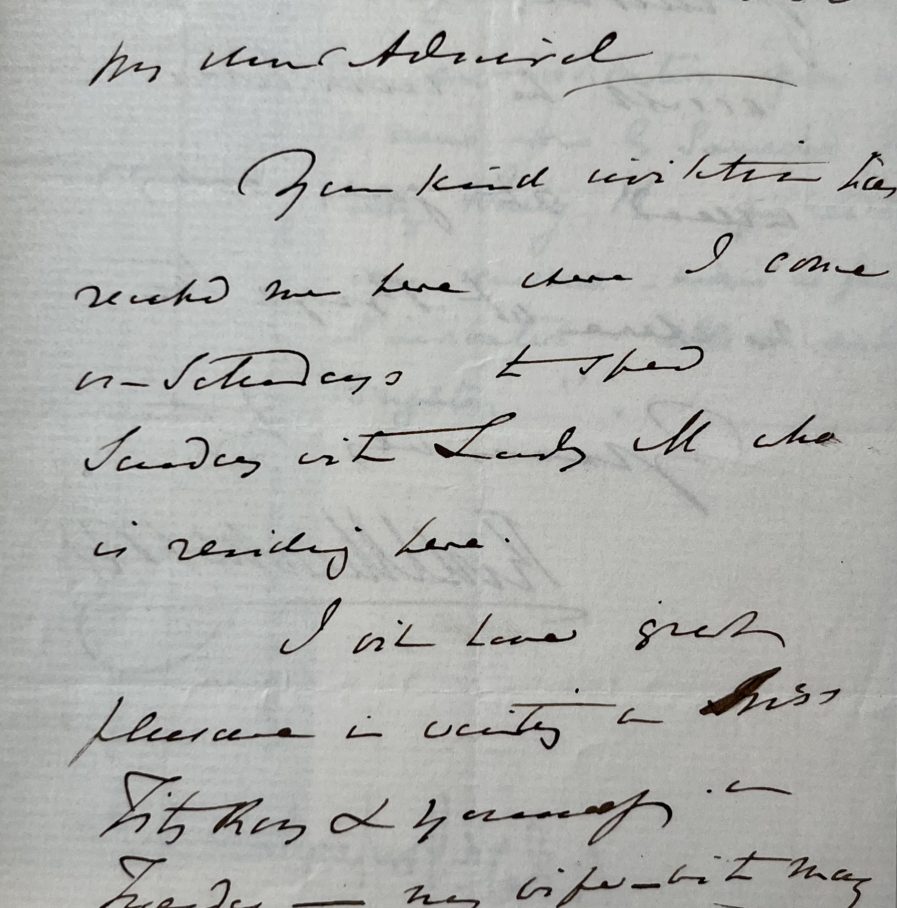 My dear Admiral
Your kind invitation has
reached me here where I come
on Saturdays to spend
Sunday with Lady M who
is residing here.
I will have great
pleasure in waiting on Miss
Fitz Roy & yourself on
Tuesday — my wife with may